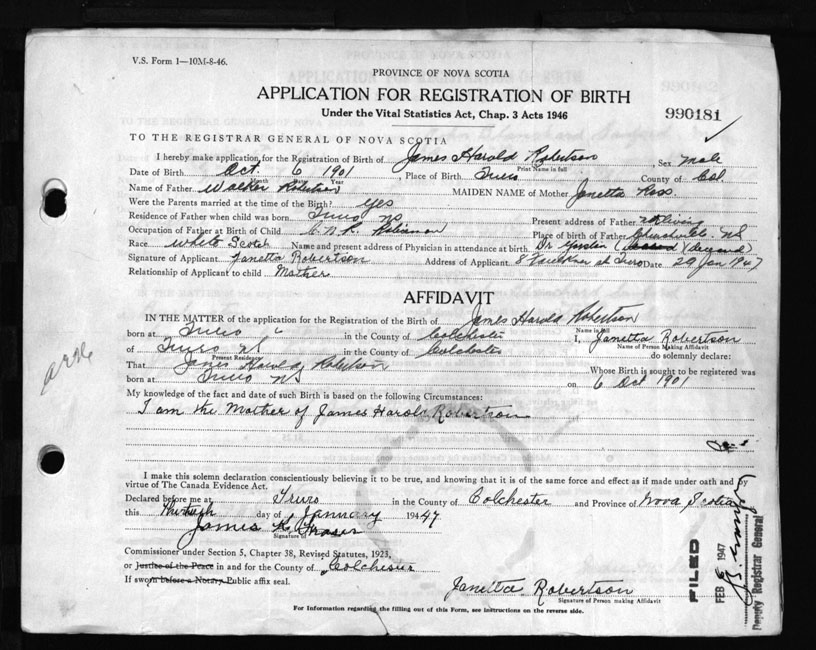 V.S. Form 1—10M-8-46.
PROVINCE OF NOVA SCOTIA
APPLICATION FOR REGISTRATION OF BIRTH
990181
Under the Vital Statistics Act, Chap. 3 Acts 1946
TO THE REGISTRAR GENERAL OF NOVA SCOTIA
I hereby make application for the Registration of Birth of James Harold Robertson, Sex male
Print Name in full
Date of Birth Oct. 6 1901, Place of Birth Truro County of Col.
Month Date Year
Name of Father Walker Robertson MAIDEN NAME of Mother Janetta Ross.
Were the Parents married at the time of the Birth? yes
Residence of Father when child was born Truro NS Present address of Father not living
Occupation of Father at Birth of Child C.N.R. Policeman Place of birth of Father NS
Race White Scotch Name and present address of Physician in attendance at birth Dr (deceased)
Signature of Applicant Janetta Robertson Address of Applicant 8 Faulkner st Truro Date 29 Jan 1947
Relationship of Applicant to child Mother
AFFIDAVIT
IN THE MATTER of the application for the Registration of Birth of James Harold Robertson
Name in full
born at Truro in the County of Colchester I, Janetta Robertson
Name of Person Making Affidavit
of Truro NS in the County of Colchester do solemnly declare:
Present Residence
That James Harold Robertson Whose Birth is sought to be registered was
born at Truro NS on 6 Oct 1901
My knowledge of the fact and date of such Birth is based on the following Circumstances:
I am the Mother of James Harold Robertson
I make this solemn declaration conscientiously believing it to be true, and knowing that it is of the same force and effect as if made under oath and by
virtue of The Canada Evidence Act.
Declared before me at Truro in the County of Colchester and Province of Nova Scotia
this thirtieth day of January 1947
James K. Fraser
Signature of
Commissioner under Section 5, Chapter 38, Revised Statutes, 1923,
or Justice of the Peace in and for the County of Colchester
If sworn before a Notary Public affix seal.
Janetta Robertson
Signature of Person making Affidavit
For Information regarding the filling out of this Form, see instructions on the reverse side.
FILED
FEB 1947
Deputy Registrar General